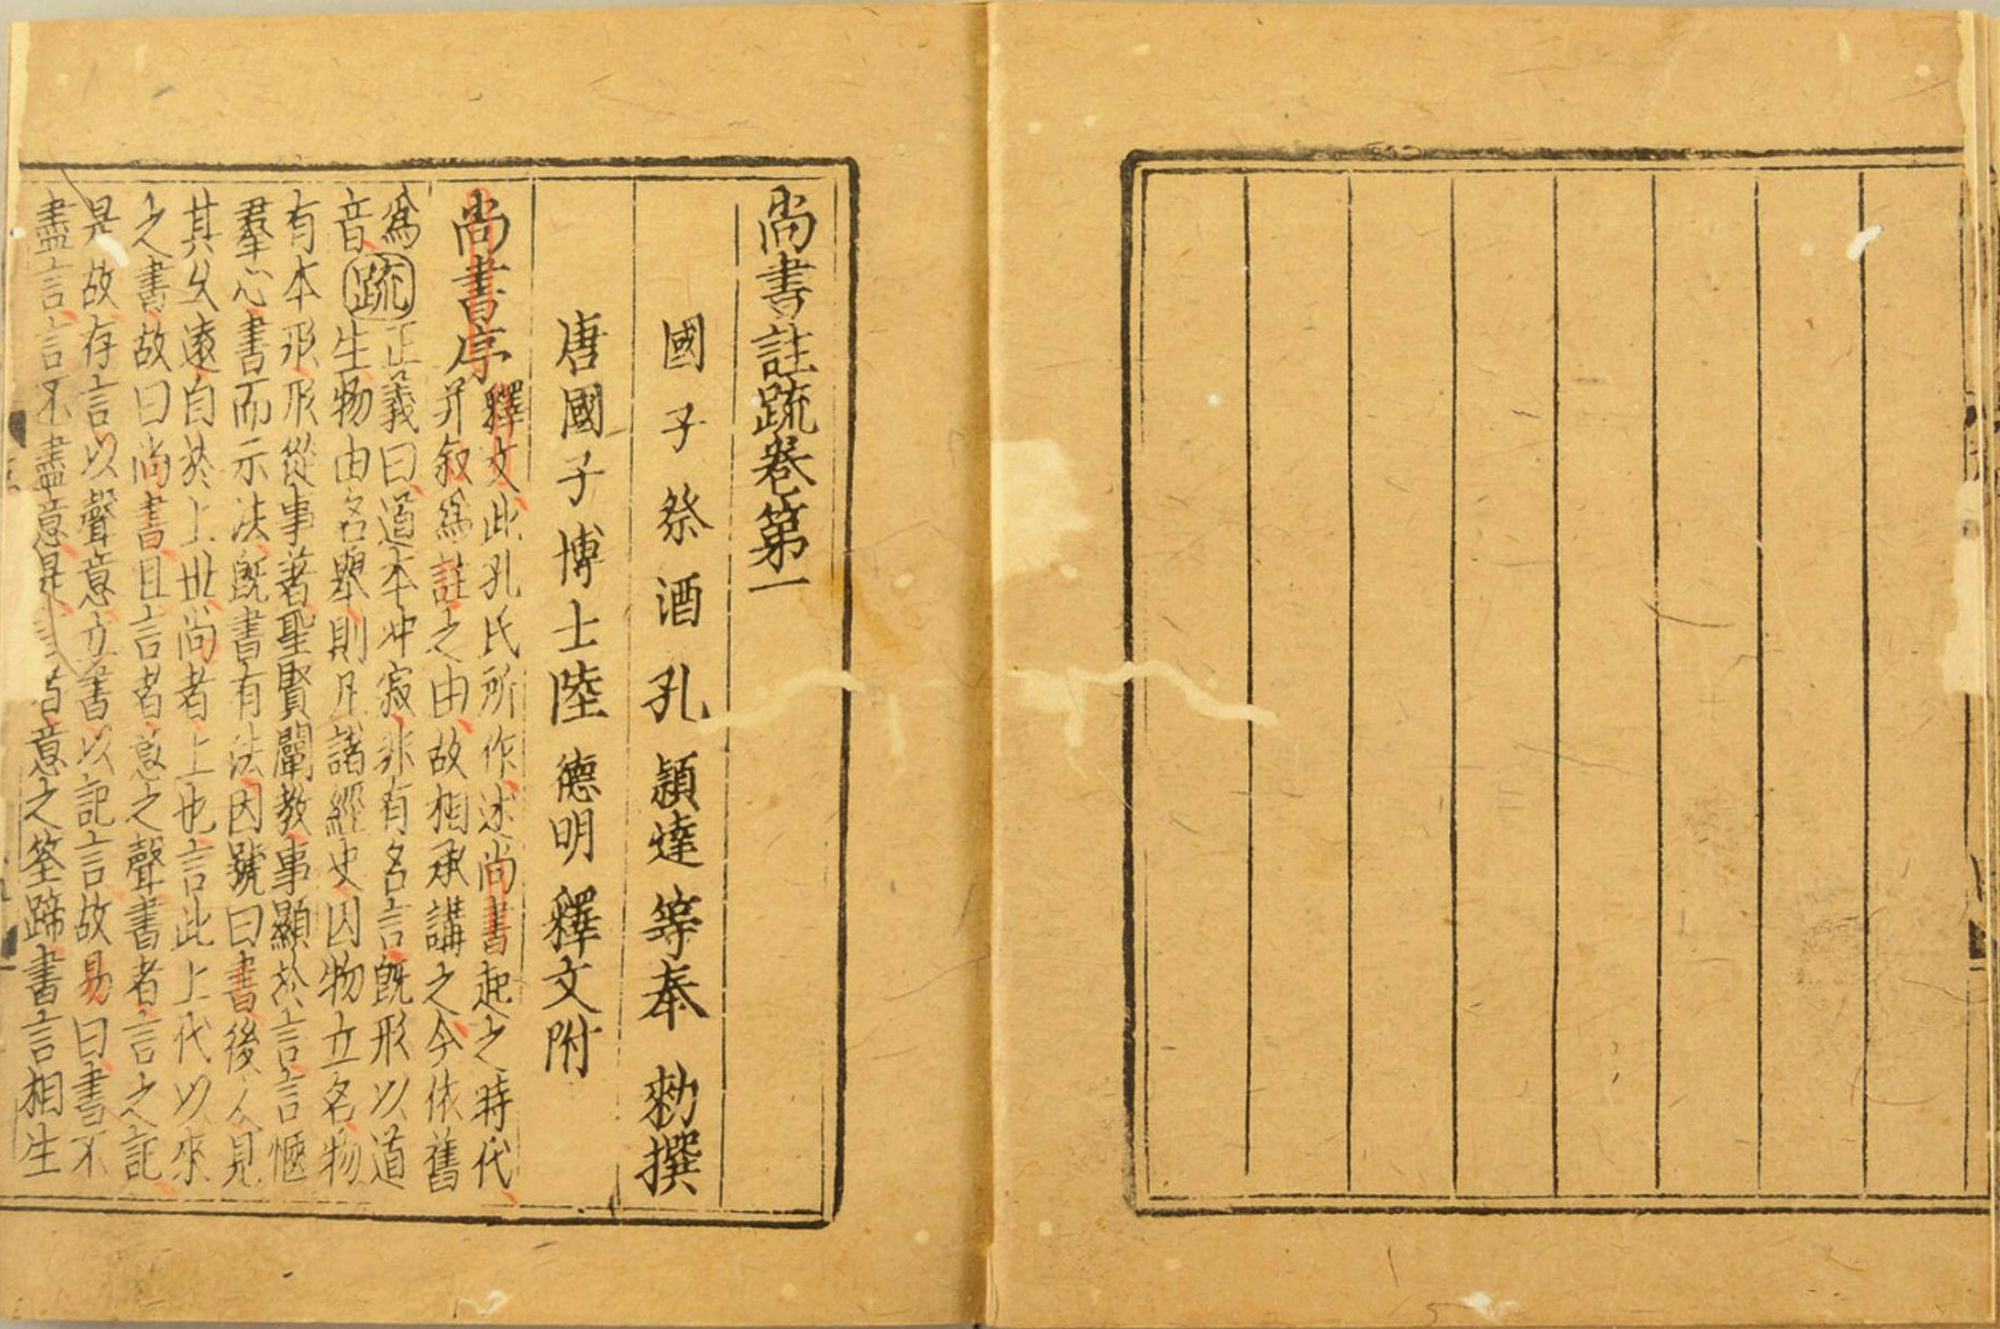 尚書註疏卷第一
國子祭酒孔穎達等奉 勑撰
唐國子博士陸德明釋文附
尚書序釋文此孔氏所作述尚書起之時代
并叙爲註之由故相承講之今依舊
爲
音疏正義曰道本冲寂非有名言旣形以道
生物由名舉則凡諸經史因物立名物
有本形形從事著聖賢闡教事顯於言言愜
羣心書而示法旣書有法因號曰書後人見
其久遠自於上世尚者上也言此上代以來
之書故曰尚書且言者意之聲書者言之記
是故存言以聲意立書以記言故易曰書不
盡言言不盡意是 言意之筌蹄書言相生